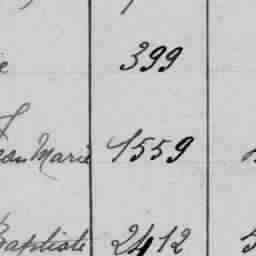 399
Jean Marie 1559
Baptiste 2412